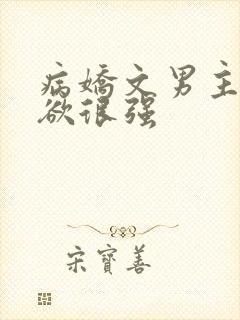 病嬌文男主
欲很强
宋寶善